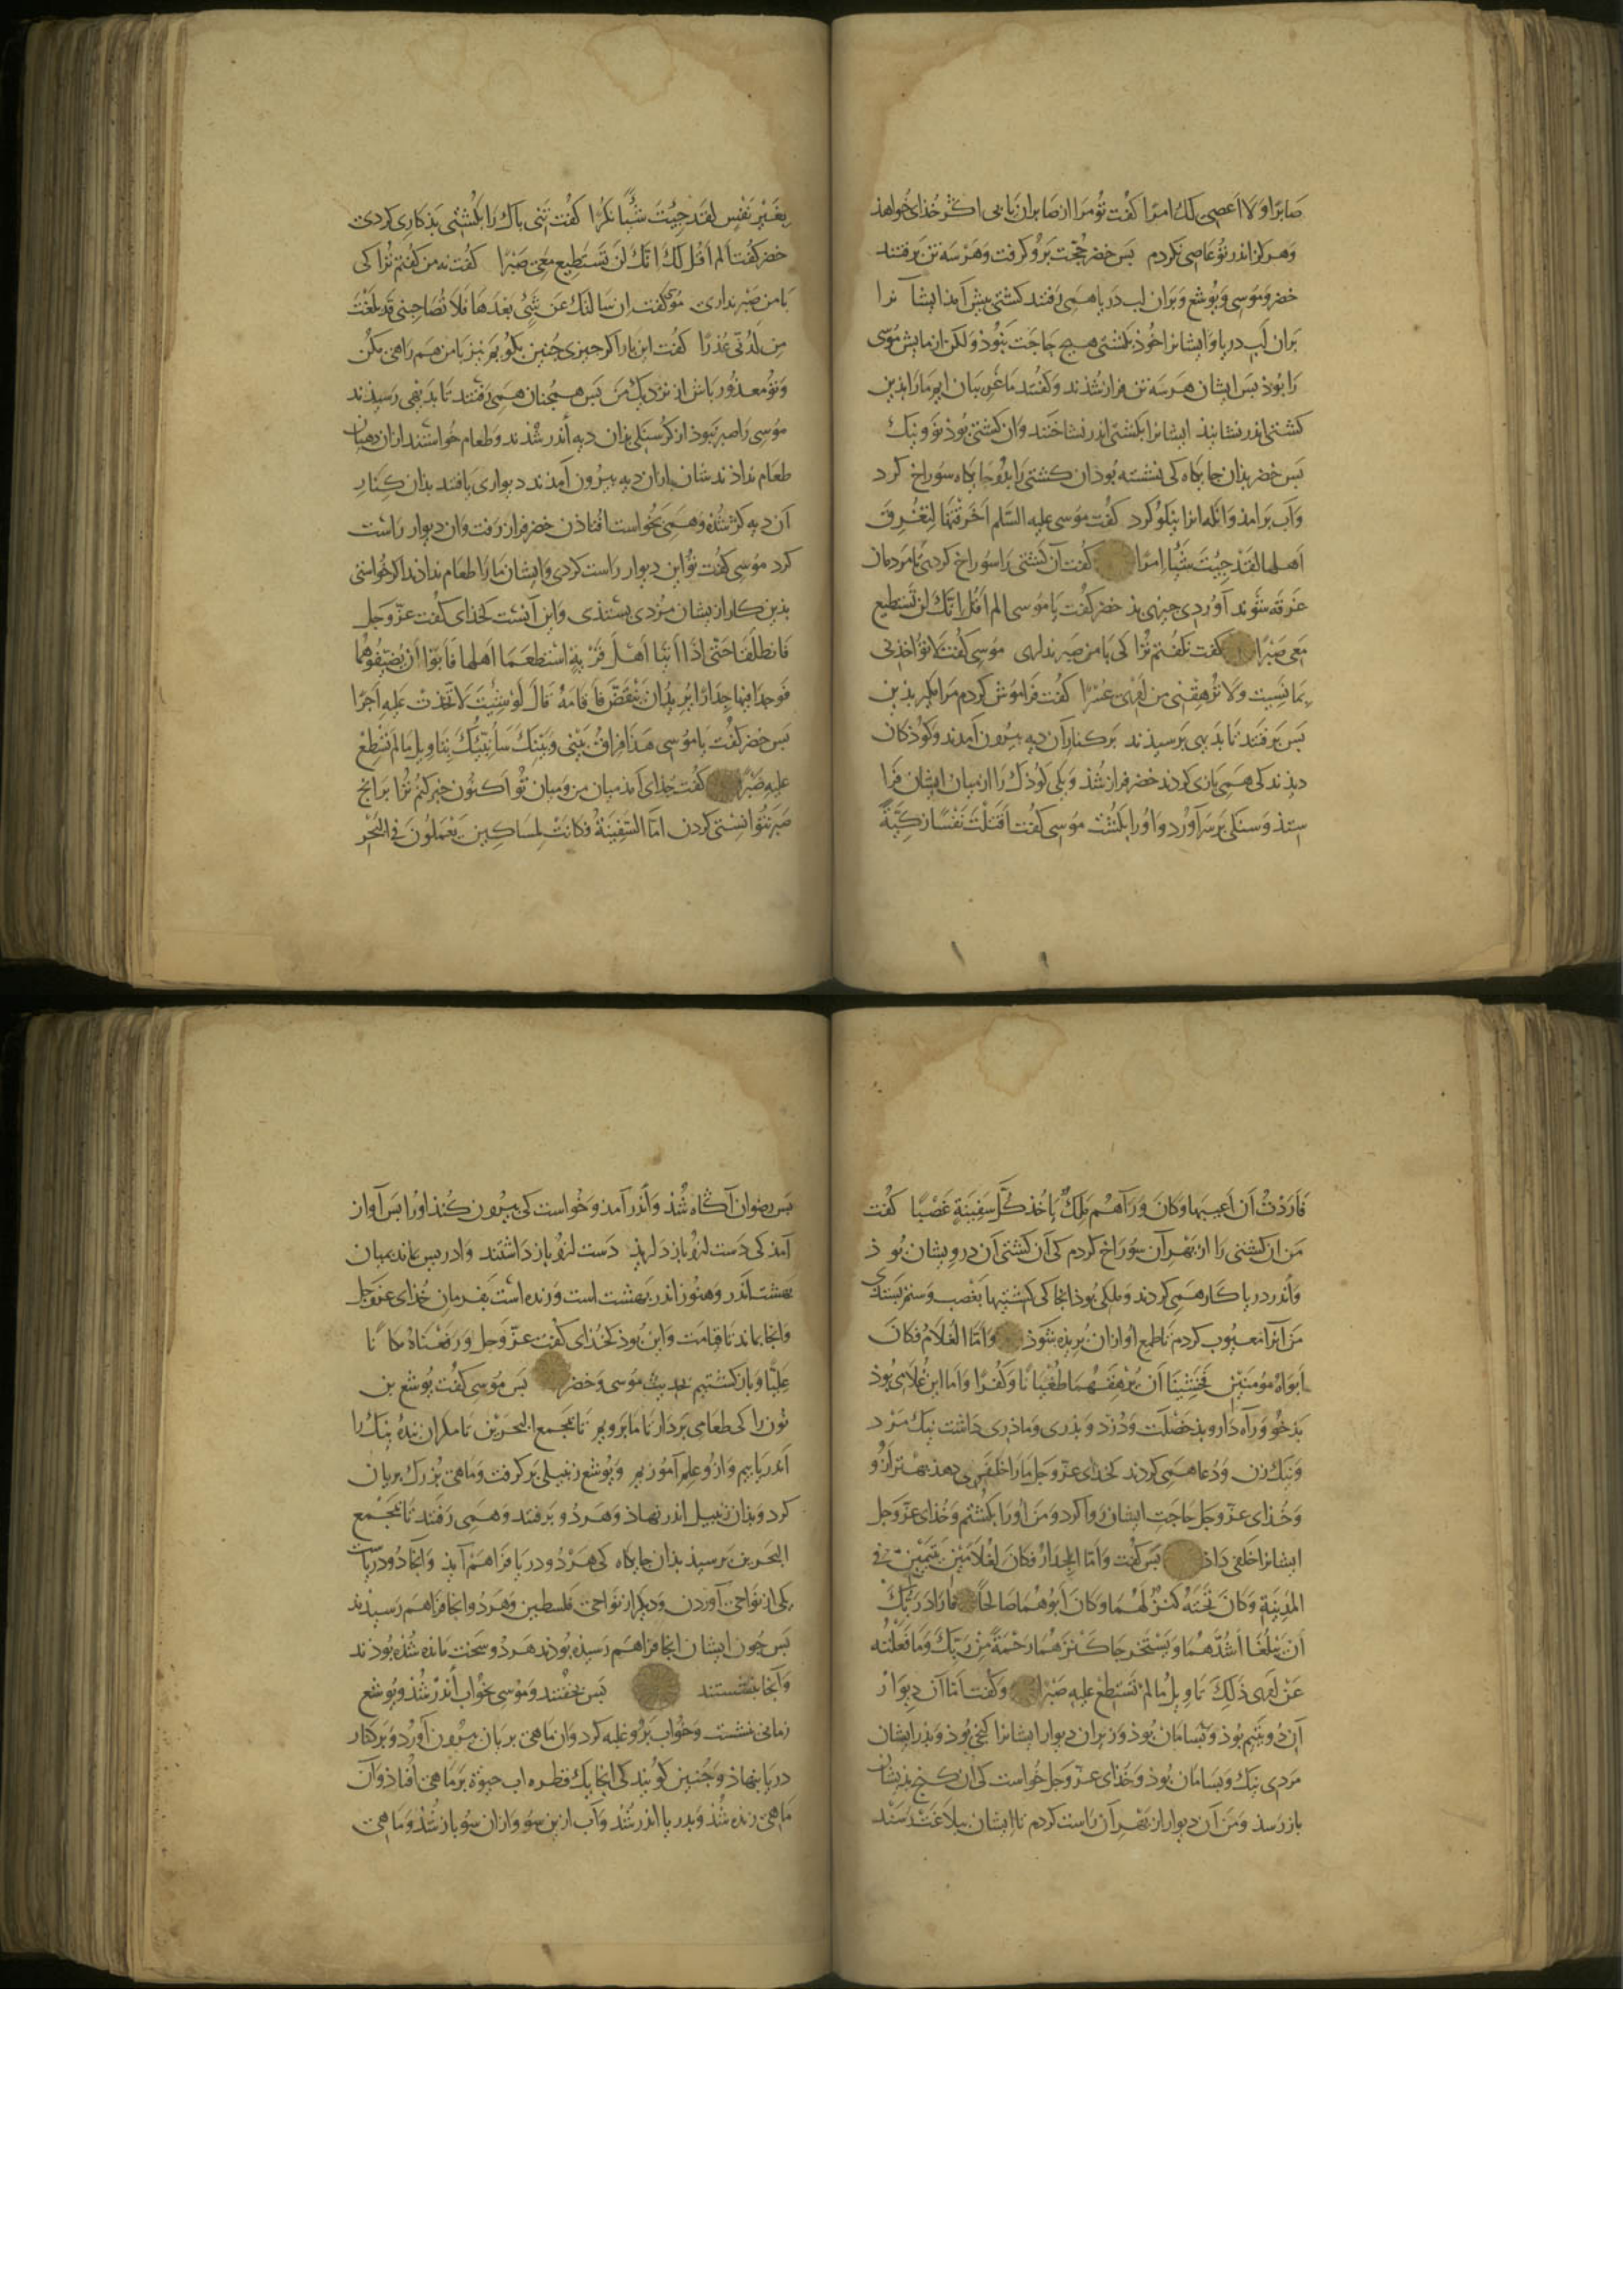 صابرا ولا اعصی لک امرا کفت تو مرا از صابران یابی اکر خذای خواهذ
وهرکز اندر تو عاصی نکردم بس خضر حجت برو کرفت وهر سه تن برفتند
خضر وموسی ویوشع وبران لب دریا همی رفتند کشتی بیش آمذ ایشانرا
بران لب دریا وایشانرا خوذ بکشتی هیچ حاجت نبوذ ولکن ازمایش موسی
را بوذ بس ایشان هر سه تن فراز شذند وکفتند ما غریبان ایم ما را بذین
کشتی اندر نشانیذ ایشانرا بکشتی اندر نشاختند وان کشتی بوذ نو ونیک
بس خضر بذان جایکاه کی نشسته بوذ ان کشتی را بذو جایکاه سوراخ کرد
وآب برامذ وانکه انرا نیکو کرد کفت موسی علیه السلم اخرقتها لتغرق
اهلها لقد جیت شیا امرا کفت آن کشتی را سوراخ کردی تا مردمان
غرقه شوند آوردی چیزی بذ خضر کفت یا موسی الم اقل انک لن تستطیع
معی صبرا کفت نکفتم ترا کی با من صبر نداری موسی کفت لا تؤاخذنی
بما نسیت ولا ترهقنی من امری عسرا کفت فراموش کردم مرا مکیر بذین
بس برفتند تا بدیهی برسیذند برکنار آن دیه بیرون آمدند وکوذکان
دیذند کی همی بازی کردند خضر فراز شذ ویکی کوذک را از میان ایشان فرا
ستذ وسنکی برسر آورد واورا بکشت موسی کفت اقتلت نفسا زکیة
بغیر نفس لقد جیت شیا نکرا کفت تنی باک را بکشتی بذ کاری کردی
خضر کفت الم اقل لک انک لن تستطیع معی صبرا کفت نه من کفتم ترا کی
با من صبر نداری موسی کفت ان سالتک عن شیء بعدها فلا تصاحبنی قد بلغت
من لدنی عذرا کفت این بار اکر چیزی چنین بکویم نیز با من همراهی مکن
وتو معذور باش از نزدیک من بس همچنان همی رفتند تا بدیهی رسیذند
موسی را صبر نبوذ از کرسنکی بذان دیه أندر شذند وطعام خواستند ازان دهیان
طعام نداذندشان باز ان دیه بیرون آمذند دیواری یافتند بذان کنار
آن دیه کژ شذه وهمی بخواست افتاذن خضر فراز رفت وان دیوار راست
کرد موسی کفت تو این دیوار راست کردی وایشان ما را طعام نداذند اکر خواستی
بذین کار از یشان مزدی بستذی واین آنست کخذای کفت عز وجل
فانطلقا حتی اذا أتیا أهل قریة استطعما اهلها فأبوا أن یضیفوهما
فوجدا فیها جدارا یرید ان ینقض فأقامه قال لو شیت لاتخذت علیه اجرا
بس خضر کفت یا موسی هذا فراق بینی وبینک سأنبئک بتاویل ما لم تستطع
علیه صبرا کفت جذای آمذ میان من ومیان تو اکنون خبر کنم ترا بر انج
صبر نتوانستی کردن اما السفینة فکانت لمساکین یعملون فی البحر
فأردت أن أعیبها وکان ورآهم ملک یاخذ کل سفینة غصبا کفت
من ان کشتی را از بهر آن سوراخ کردم کی آن کشتی آن درویشان بوذ
وأندر دریا کار همی کردند وملکی بوذ انجا کی کشتیها بغصب وستم بستذی
من آنرا معیوب کردم تا طمع او ازان بریذه شوذ واما الغلام فکان
ابواه مومنین فخشینا ان یرهقهما طغیانا وکفرا واما این غلامی بوذ
بذخو وراه دار وبذ خصلت ودزد وبذری وماذری داشت نیک مرد
ونیک زن ودعا همی کردند کخذای عز وجل ما را خلفی دهذ بهتر ازو
وخذای عز وجل حاجت ایشان روا کرد ومن اورا بکشتم وخذای عز وجل
ایشانرا خلفی داذ بس کفت واما الجدار فکان لغلامین یتیمین فی
المدینة وکان تحته کنز لهما وکان أبوهما صالحا فاراد ربک
أن یبلغا أشدهما ویستخرجا کنزهما رحمة من ربک وما فعلته
عن امری ذلک تاویل ما لم تسطع علیه صبرا وکفت اما آن دیوار
آن دو یتیم بوذ وبسامان بوذ وزیر ان دیوار ایشانرا کنجی بوذ وبذر ایشان
مردی نیک وبسامان بوذ وخذای عز وجل خواست کی ان کنج بذیشان
باز رسذ ومن آن دیوار از بهر آن راست کردم تا ایشان ببلاغت رسند
بس رضوان آکاه شذ وأندر آمد وخواست کی بیرون کنذ اورا بس آواز
آمذ کی دست ازو باز داریذ دست ازو باز داشتند وادریس بماند بمیان
بهشت أندر وهنوز اندر بهشت است وزنده است بفرمان خذای عز وجل
وانجا بماند تا قیامت واین بوذ کخذای کفت عز وجل ورفعناه مکانا
علیا وباز کشتیم بحدیث موسی وخضر بس موسی کفت یوشع بن
نون را کی طعامی بردار تا ما برویم تا بمجمع البحرین تا مکر ان بنده نیک را
أندر یابیم وازو علم آموزیم ویوشع زنبیلی برکرفت وماهی بزرک بریان
کرد وبذان زنبیل اندر نهاذ وهر دو برفتند وهمی رفتند تا بمجمع
البحرین برسیذ بذان جایکاه کی هر دو دریا فراهم آیذ وانجا دو دریاست
یکی از نواحی آوردن ودیکر از نواحی فلسطین وهر دو انجا فراهم رسیذند
بس چون ایشان انجا فراهم رسیذه بوذند هر دو سخت مانده شذه بوذند
وآنجا بنشستند بس بخفتند وموسی بخواب أندر شذ ویوشع
زمانی نشست وخواب برو غلبه کرد وان ماهی بریان بیرون آورد وبر کنار
دریا بنهاذ وچنین کویند کی انجا یک قطره اب حیوة بر ماهی افتاذ وآن
ماهی زنده شذ وبدریا اندر شذ وآب ازین سو وازان سو باز شذ وماهی